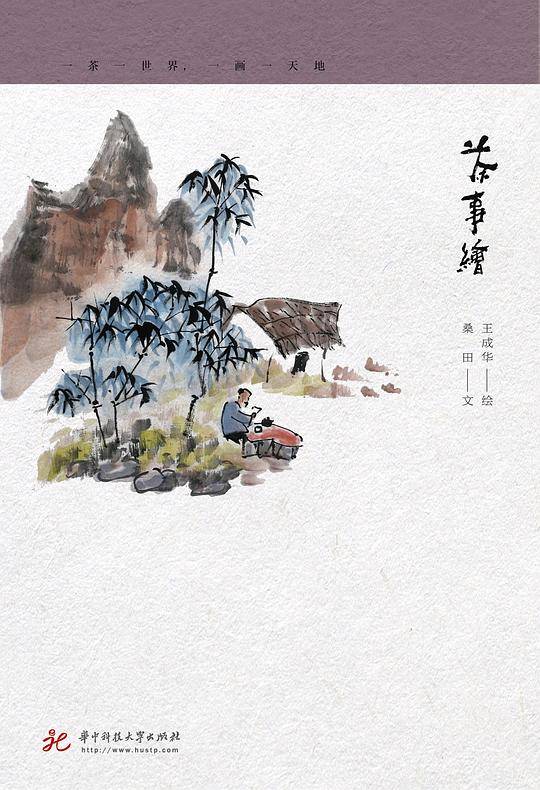 一茶一世界，一画一天地
茶事繪
王成华——绘
桑田——文
華中科技大学出版社
http://www.hustp.com